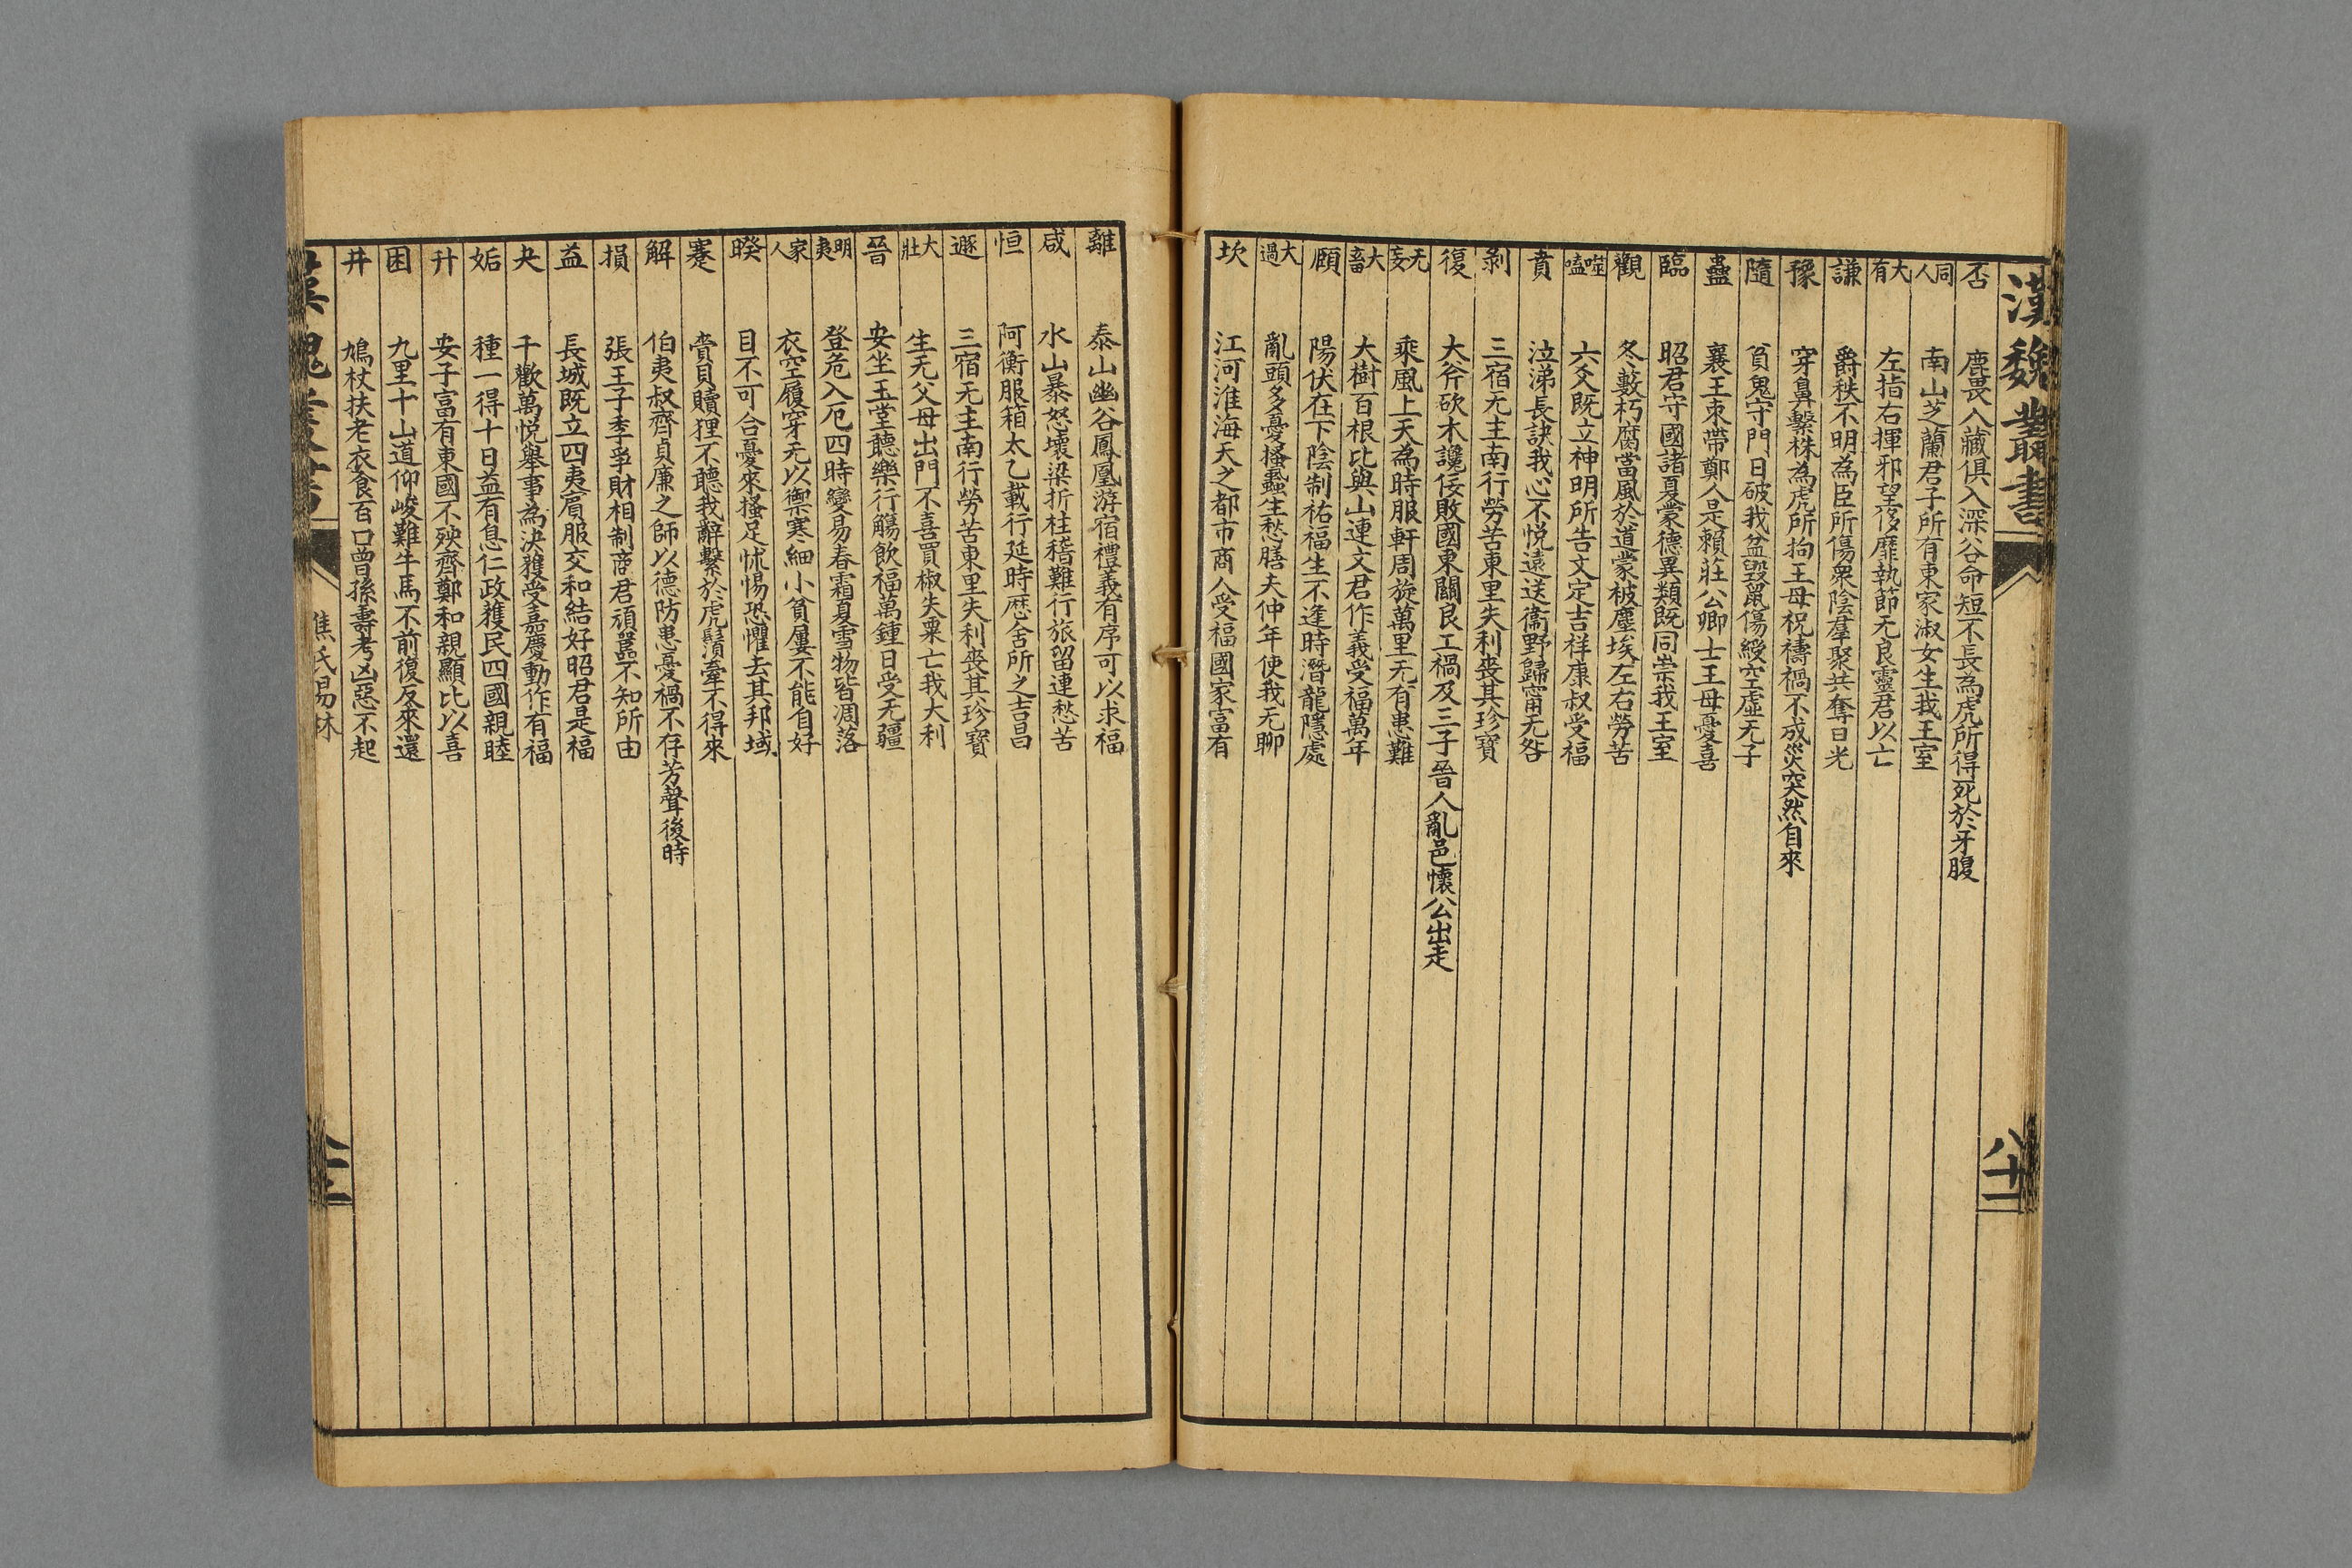 漢魏叢書
八十二
否 鹿畏人藏俱入深谷命短不長為虎所得死於牙腹
同人 南山芝蘭君子所有東家淑女生我王室
大有 左指右揮邪望侈靡執節无良靈君以亡
謙 爵秩不明為臣所傷衆陰羣聚共奪日光
豫 穿鼻繫株為虎所拘王母祝禱禍不成災突然自來
隨 貧鬼守門日破我盆毀罌傷綬空虛无子
蠱 襄王束帶鄭人是賴莊公卿士王母憂喜
臨 昭君守國諸夏蒙德異類既同崇我王室
觀 冬藪朽腐當風於道蒙被塵埃左右勞苦
噬嗑 六爻既立神明所告文定吉祥康叔受福
賁 泣涕長訣我心不悅遠送衞野歸甯无咎
剝 三宿无主南行勞苦東里失利喪其珍寶
復 大斧砍木讒佞敗國東關艮工禍及三子晉人亂邑懷公出走
无妄 乘風上天為時服軒周旋萬里无有患難
大畜 大樹百根比與山連文君作義受福萬年
頤 陽伏在下陰制祐福生不逢時潛龍隱處
大過 亂頭多憂搔蝨生愁膳夫仲年使我无聊
坎 江河淮海天之都市商人受福國家富有
離 泰山幽谷鳳凰游宿禮義有序可以求福
咸 水山暴怒壞梁折柱稽難行旅留連愁苦
恒 阿衡服箱太乙載行延時歷舍所之吉昌
遯 三宿无主南行勞苦東里失利喪其珍寶
大壯 生无父母出門不喜買椒失粟亡我大利
晉 安坐玉堂聽樂行觴飲福萬鍾日受无疆
明夷 登危入厄四時變易春霜夏雪物皆凋落
家人 衣空履穿无以禦寒細小貧屢不能自好
暌 目不可合憂來搔足怵惕恐懼去其邦域
蹇 賫貝贖狸不聽我辭繫於虎鬚牽不得來
解 伯夷叔齊貞廉之師以德防患憂禍不存芳聲後時
損 張王子季爭財相制商君頑嚚不知所由
益 長城既立四夷賓服交和結好昭君是福
夬 千歡萬悅舉事為決獲受嘉慶動作有福
姤 種一得十日益有息仁政獲民四國親睦
升 安子富有東國不殃齊鄭和親顯比以喜
困 九里十山道仰峻難牛馬不前復反來還
井 鳩杖扶老衣食百口曾孫壽考凶惡不起
焦氏易林